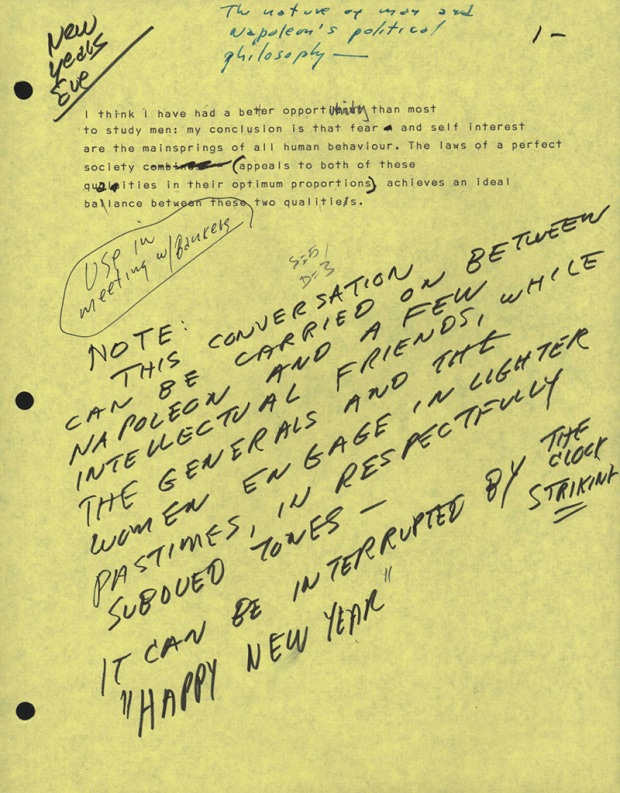 New
Years
Eve
The nature of man and
Napoleon's political
philosophy —
1 -
I think i have had a better opportunity than most
to study men: my conclusion is that fear and self interest
are the mainsprings of all human behaviour. The laws of a perfect
society (appeals to both of these
qualities in their optimum proportions) achieves an ideal
ballance between these two qualities.
Use in
meeting w/ Bankers
S=5/
D=3
NOTE:
THIS CONVERSATION
CAN BE CARRIED ON BETWEEN
NAPOLEON AND A FEW
INTELLECTUAL FRIENDS, WHILE
THE GENERALS AND THE
WOMEN ENGAGE IN LIGHTER
PASTIMES, IN RESPECTFULLY
SUBDUED TONES —
IT CAN BE INTERRUPTED BY THE
CLOCK
STRIKING
"HAPPY NEW YEAR"